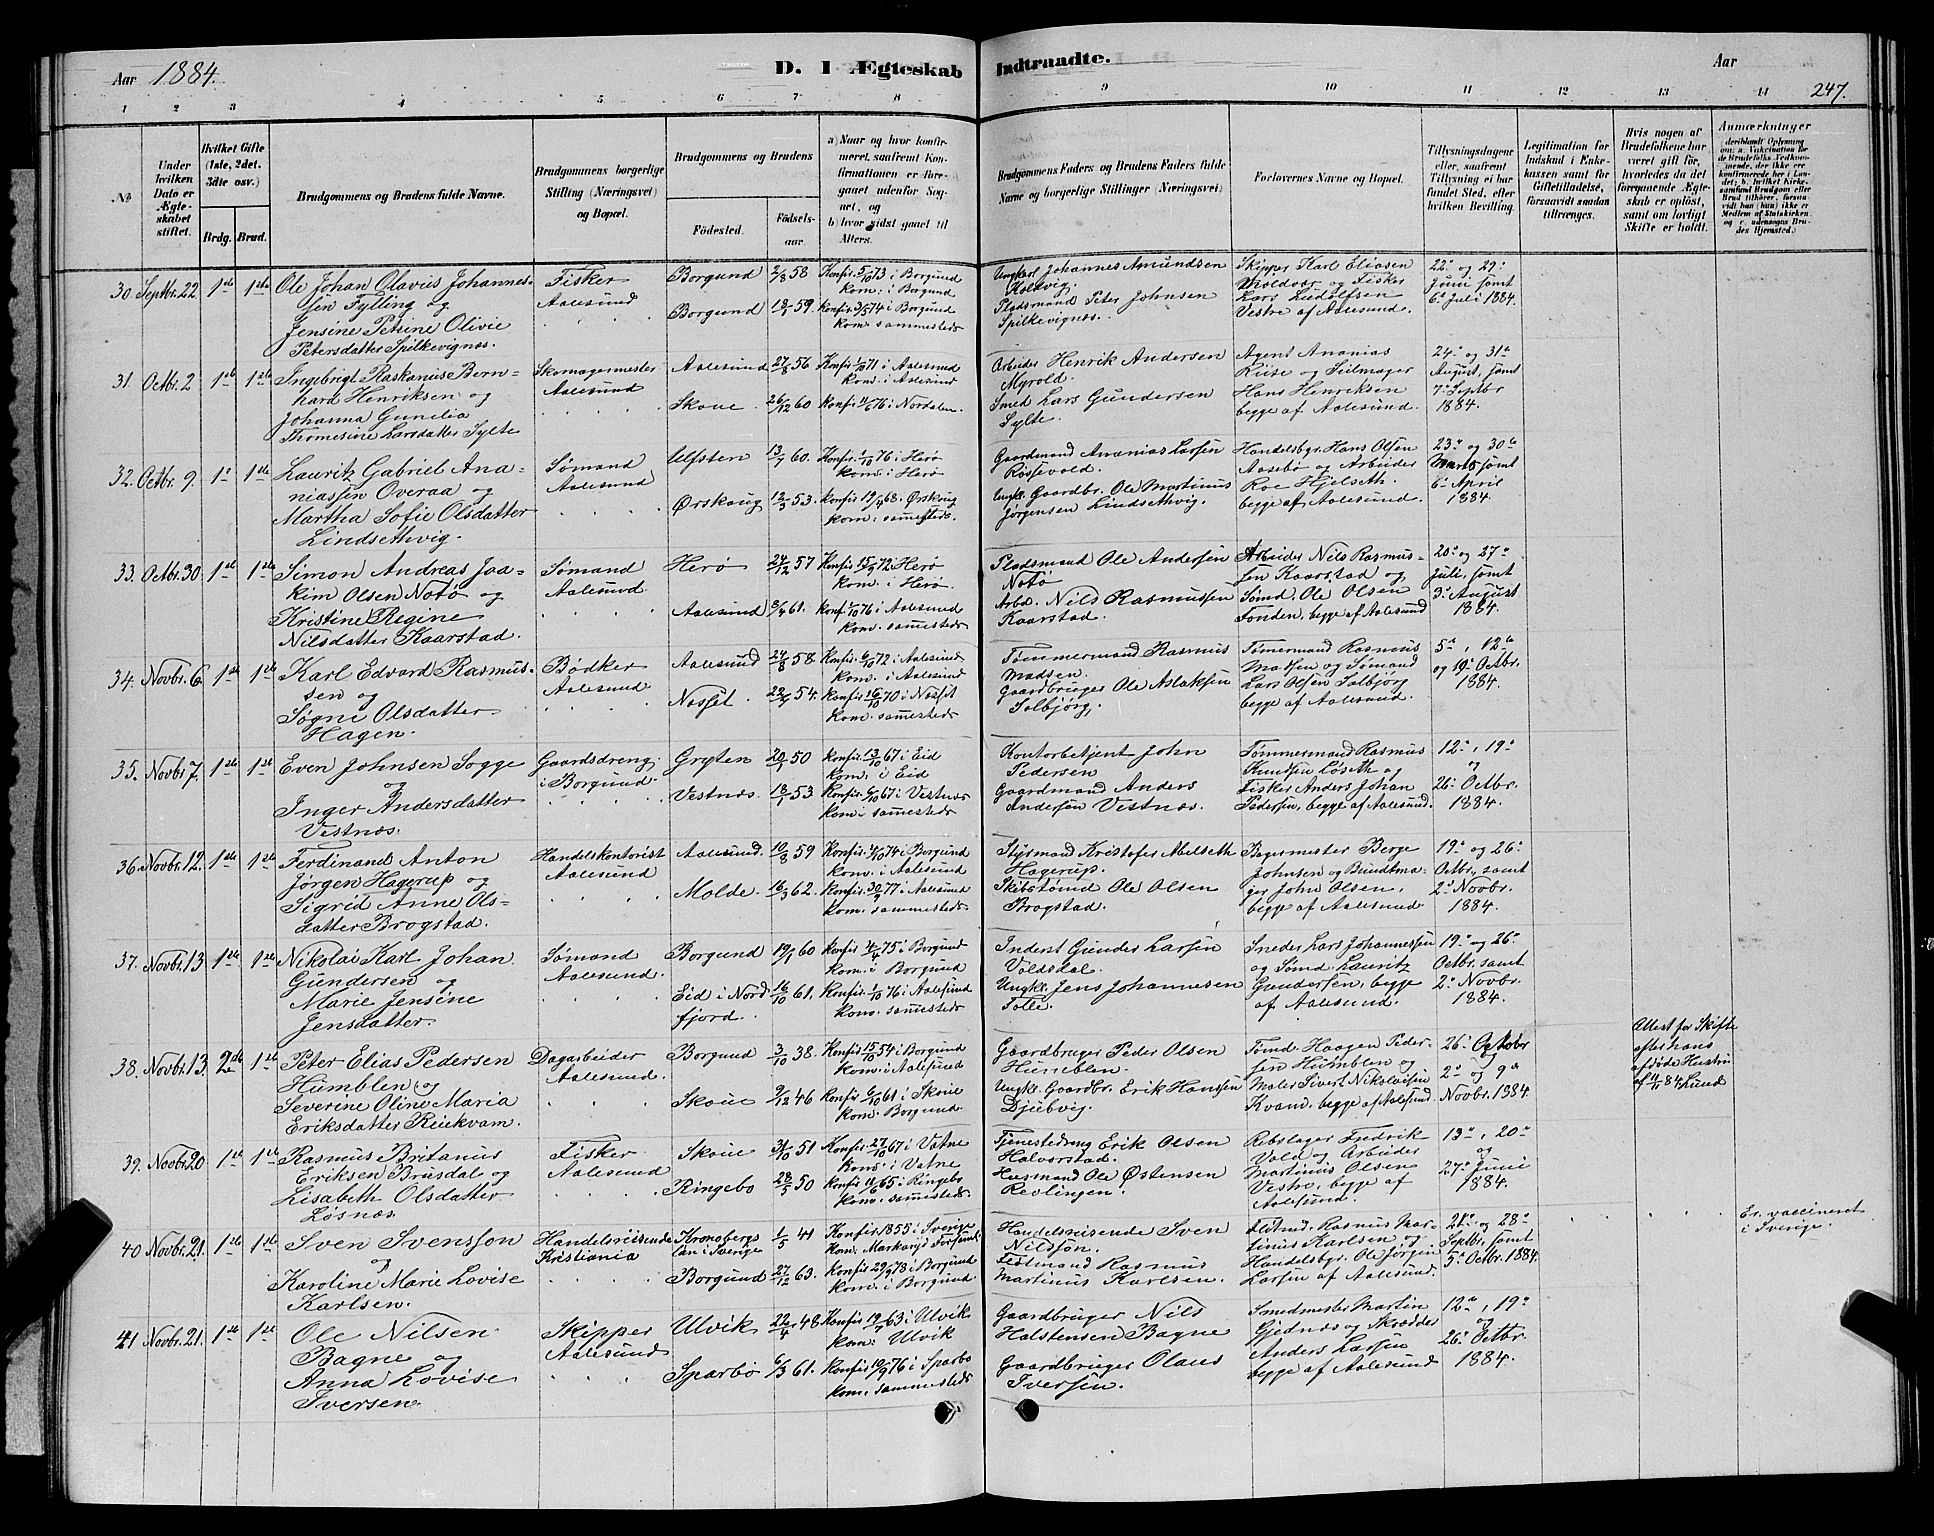 Aar 1884.
D. I Ægteskab Indtraadte.
Aar
247.
1 2 3 4 5 6 7 8 9 10 11 12 13 14
No.
Under hvilken Dato er Ægteskabet stiftet.
Hvilket Gifte (1ste, 2det, 3dte osv.)
Brdg. Brud.
Brudgommens og Brudens fulde Navne.
Brudgommens borgerlige Stilling (Næringsvei) og Bopæl.
Brudgommens og Brudens
Fødested.
Fødselsaar.
a) Naar og hvor konfirmeret, saafremt Konfirmationen er foregaaet udenfor Sognet, og
b) hvor sidst gaaet til Alters.
Brudgommens Faders og Brudens Faders fulde Navne og borgerlige Stillinger (Næringsvei)
Forlovernes Navne og Bopæl.
Tillysningsdagene eller, saafremt Tillysning ei har fundet Sted, efter hvilken Bevilling.
Legitimation for Indskud i Enkekassen samt for Giftetilladelse, forsaavidt saadan tiltrænges.
Hvis nogen af Brudefolkene har været gift før, hvorledes da det foregaaende Ægteskab er opløst, samt om lovligt Skifte er holdt.
Anmærkninger
30. Septbr. 22 1ste 1ste
Ole Johan Olavius Johannes-
sen Fylling og
Jensine Petrine Olivie
Petersdatter Spilkevignæs.
Fisker
Aalesund
Borgund 2/8 58
Borgund 18/1 59.
Konfir. 5/10 73 i Borgund
kom: i Borgund
Konfir. 3/5 74 i Borgund
kom. sammesteds
Ungkarl Johannes Amundsen
Kolkvig.
Pladsmand Peter Johnsen
Spilkevignæs.
Skipper Karl Eliasen
Voldvær og Fisker
Lars Ludolfsen
Vestre af Aalesund.
22de og 29de
Juni samt
6te Juli 1884.
31. Octbr. 2 1ste 1ste
Ingebrigt Raskanius Bern-
hard Henriksen og
Johanna Gunelia
Thomesine Larsdatter Sylte
Skomagermester
Aalesund
Aalesund 27/8 56
Skoue 26/12 60
Konfir. 1/10 71 i Aalesund
kom. i Aalesund
Konfir. 11/6 76 i Nordalen.
Arbeider Henrik Andersen
Myrold.
Smed Lars Gundersen
Sylte.
Agent Ananias
Riise og Seilmager
Hans Henriksen
begge af Aalesund.
24de og 31te
August, samt
7de Septbr
1884.
32. Octbr. 9. 1ste 1ste
Lauritz Gabriel Ana-
niassen Overaa og
Martha Sofie Olsdatter
Lindsethvig.
Sømand
Aalesund
Ulfsten 13/7 60.
Ørskoug 12/3 53.
Konfir. 1/10 76 i Herø
kom: i Herø
Konfir. 19/4 68. Ørskoug
kom: sammesteds.
Gaardmand Ananias Larsen
Røsevold.
Ungk. Gaardbr. Ole Martinus
Jørgensen Lindsethvig.
Handelsbgr. Hans Olsen
Aasebø og Arbeider
Roe Hjelseth.
begge af Aalesund.
23de og 30te
Marts, samt
6te April
1884.
33. Octbr. 30 1ste 1ste
Simon Andreas Joa-
kim Olsen Notø og
Kristine Regine
Nilsdatter Kaarstad.
Sømand
Aalesund
Herø 24/12 57
Aalesund 8/4 61.
Konfir. 15/9 72 Herø
kom: i Herø
Konf. 1/10 76 i Aalesund
kom. sammesteds
Pladsmand Ole Andersen
Notø
Arbd. Nils Rasmussen
Kaarstad.
Arbeider Nils Rasmus-
sen Kaarstad og
Sømd. Ole Olsen
Fonden, begge af Aalesund
20de og 27de
Juli, samt
3die August
1884.
34. Novbr. 6. 1ste 1ste
Karl Edvard Rasmus-
sen og
Søgni Olsdatter
Hagen.
Bødker
Aalesund
Aalesund 24/8 58
Nosset. 22/5 54.
Konfir. 6/10 72 i Aalesund
kom. i Aalesund
Konfir. 16/10 70 i Nosset
kom. sammesteds
Tømmermand Rasmus
Madsen
Gaardbruger Ole Aslaksen
Solbjørg.
Tømermand Rasmus
Madsen og Sømand
Lars Olsen Solbjørg
begge af Aalesund.
5te, 12te
og 19de Octbr.
1884.
35. Novbr 7. 1ste 1ste
Even Johnsen Sogge
og
Inger Andersdatter
Vestnæs.
Gaardsdreng
i Borgund
Grytten 20/1 50
Vestnæs. 18/1 53.
Konfir. 13/10 67 i Eid
kom: i Eid
Konfir. 6/10 67 i Vestnæs
kom: sammesteds
Kontorbetjent John
Pedersen
Gaardmand Anders
Andersen Vestnæs.
Tømmermand Rasmus
Knudsen Løseth og
Fisker Anders Johan
Pedersen, begge af Aalesund.
12te, 19de
og
26de Octbr.
1884.
36. Novbr. 12. 1ste 1ste
Ferdinand Anton
Jørgen Hagerup og
Sigrid Anne Ols-
datter Brogstad.
Handelskontorist
Aalesund
Aalesund. 10/8 59
Molde. 16/3 62.
Konfir. 4/10 74 i Borgund
kom. i Aalesund
Konfir. 30/9 77 i Aalesund
kom. sammesteds
Styrmand Kristofer Melseth
Hagerup.
Skibstømd Ole Olsen
Brogstad.
Bagermester Berge
Johnsen og Bundtma-
ger John Olsen,
begge af Aalesund
19de og 26de
Octbr., samt
2den Novbr.
1884.
37. Novbr. 13 1ste 1ste
Nikolai Karl Johan
Gundersen og
Marie Jensine
Jensdatter.
Sømand
Aalesund.
Borgund 19/1 60
Eid i Nord-
fjord. 16/10 61.
Konfir. 4/4 75 i Borgund
kom. i Borgund
Konfir. 1/10 76 i Aalesund
kom. sammesteds
Inderst Gunder Larsen
Voldsdal.
Ungkl. Jens Johannesen
Tolle.
Snedker Lars Johannessen
og Sømd. Lauritz
Gundersen, begge
af Aalesund.
19de og 26de
Octbr. samt
2den Novbr.
1884.
38. Novbr. 13. 2den 1ste
Peter Elias Pedersen
Humblen og
Severine Oline Maria
Eriksdatter Reiekvam.
Dagarbeider
Aalesund.
Borgund 3/10 38.
Skoue 9/12 46
Konfir. 15/10 54 i Borgund
kom. i Aalesund
Konfir. 6/10 61 i Skoue
kom. Borgund.
Gaardbruger Peder Olsen
Humblen.
Ungk. Gaardbr. Erik Hansen
Djubvig.
Tømd. Haagen Peder-
sen Humblen og
Maler Sivert Nikolaisen
Kvand, begge af Aalesund.
26de Oktober
og
2den og 9de
Novbr. 1884.
Attest for Skifte
efter hans
afdøde Hustru
af 11/11 84 Lund
39. Novbr. 20 1ste 1ste
Rasmus Britanus
Eriksen Brusdal og
Lisabeth Olsdatter
Løsnæs.
Fisker
Aalesund
Skoue 31/10 51
Ringebo 28/5 50
Konfir. 27/10 67 i Vatne
kom: i Vatne
Konfir. 11/6 65 i Ringebo
kom. sammesteds
Tjenestedreng Erik Olsen
Halvorstad.
Husmand Ole Østensen
Revlingen.
Rebslager Fredrik
Vold og Arbeider
Martinus Olsen
Vestre, begge af
Aalesund.
13de, 20de
og
27de Juni
1884.
40. Novbr. 21. 1ste 1ste
Sven Svensson
og
Karoline Marie Lovise
Karlsen.
Handelsreisende
Kristiania
Kronobergs
län i Sverige 1/5 41
Borgund 27/12 63.
Konfir. 1855 i Sverige
kom. Markaryd Forsaml.
Konfir. 29/9 78 i Borgund
kom. i Borgund.
Handelsreisende Sven
Nilsson.
Festmand Rasmus
Martinus Karlsen.
Rasmus Mar-
tinus Karlsen og
Handelsbgr. Ole Jørgen
Larsen af Aalesund.
21de og 28de
Septbr. samt
5te Octbr. 1884.
Er vaccineret
i Sverige.
41. Novbr. 21. 1ste 1ste
Ole Nilsen
Bagne og
Anna Lovise
Iversen.
Skipper
Aalesund
Ulvik 22/4 48
Sparbo 6/3 61.
Konfir. 19/7 63 i Ulvik
kom. Ulvik
Konfir. 10/9 76 i Sparbo
kom. sammesteds
Gaardbruger Nils
Halstensen Bagne
Gaardbruger Olaus
Iversen.
Smedmester Martin
Gjednæs og Skrædder
Anders Larsen
begge af Aalesund
12te, 19de
og
26de Octbr.
1884.